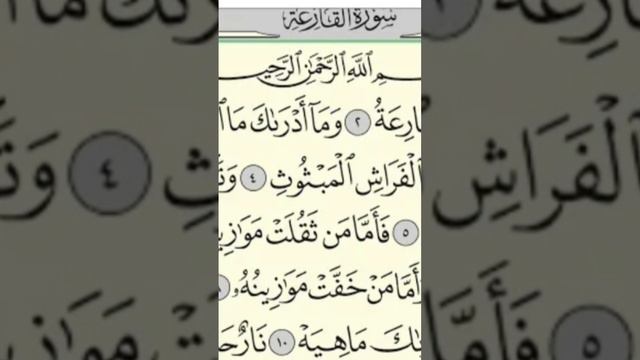 سُورَةُ القَارِعَةِ
ٱللَّهِ ٱلرَّحْمَٰنِ ٱلرَّحِيمِ
ارِعَةُ ٢ وَمَآ أَدْرَىٰكَ مَا
ٱلْفَرَاشِ ٱلْمَبْثُوثِ ٤
٥ فَأَمَّا مَن ثَقُلَتْ مَوَٰزِي
أَمَّا مَنْ خَفَّتْ مَوَٰزِينُهُۥ
كَ مَا هِيَهْ ١٠ نَارٌ